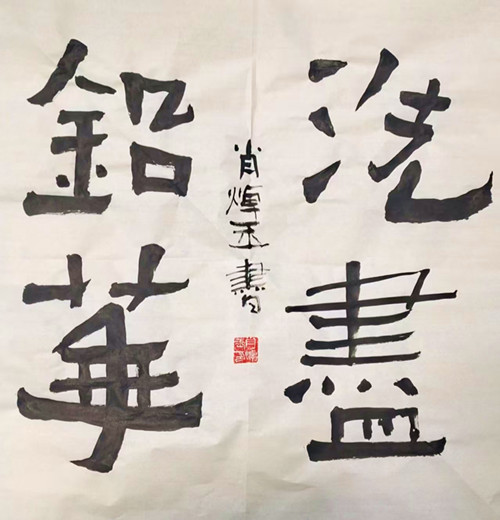 洗盡
鉛華
肖煇玉書